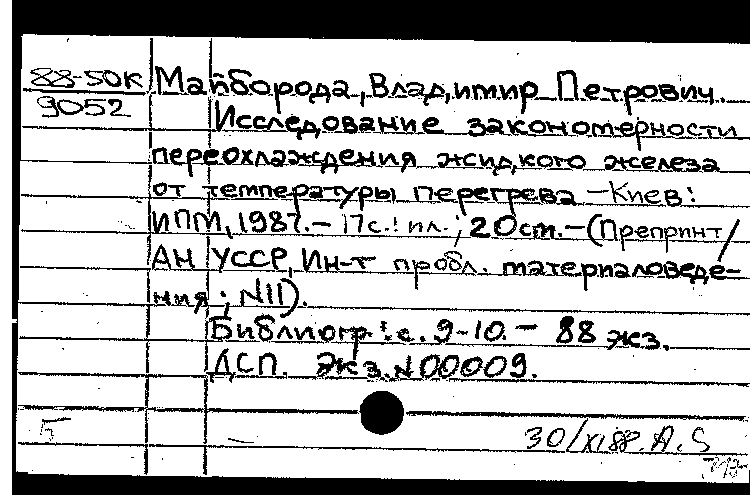 88-50К Майборода, Владимир Петрович.
9052 Исследование закономерности
переохлаждения жидкого железа
от температуры перегрева – Киев:
ИПМ, 1987. – 17с.: ил.; 20 cm. – (Препринт/
АН УССР, Ин-т пробл. материаловеде-
ния; N11).
Библиогр.: с. 9-10. – 88 экз.
ДСП. Экз. N00009.
Б
30/XI 88. A.S